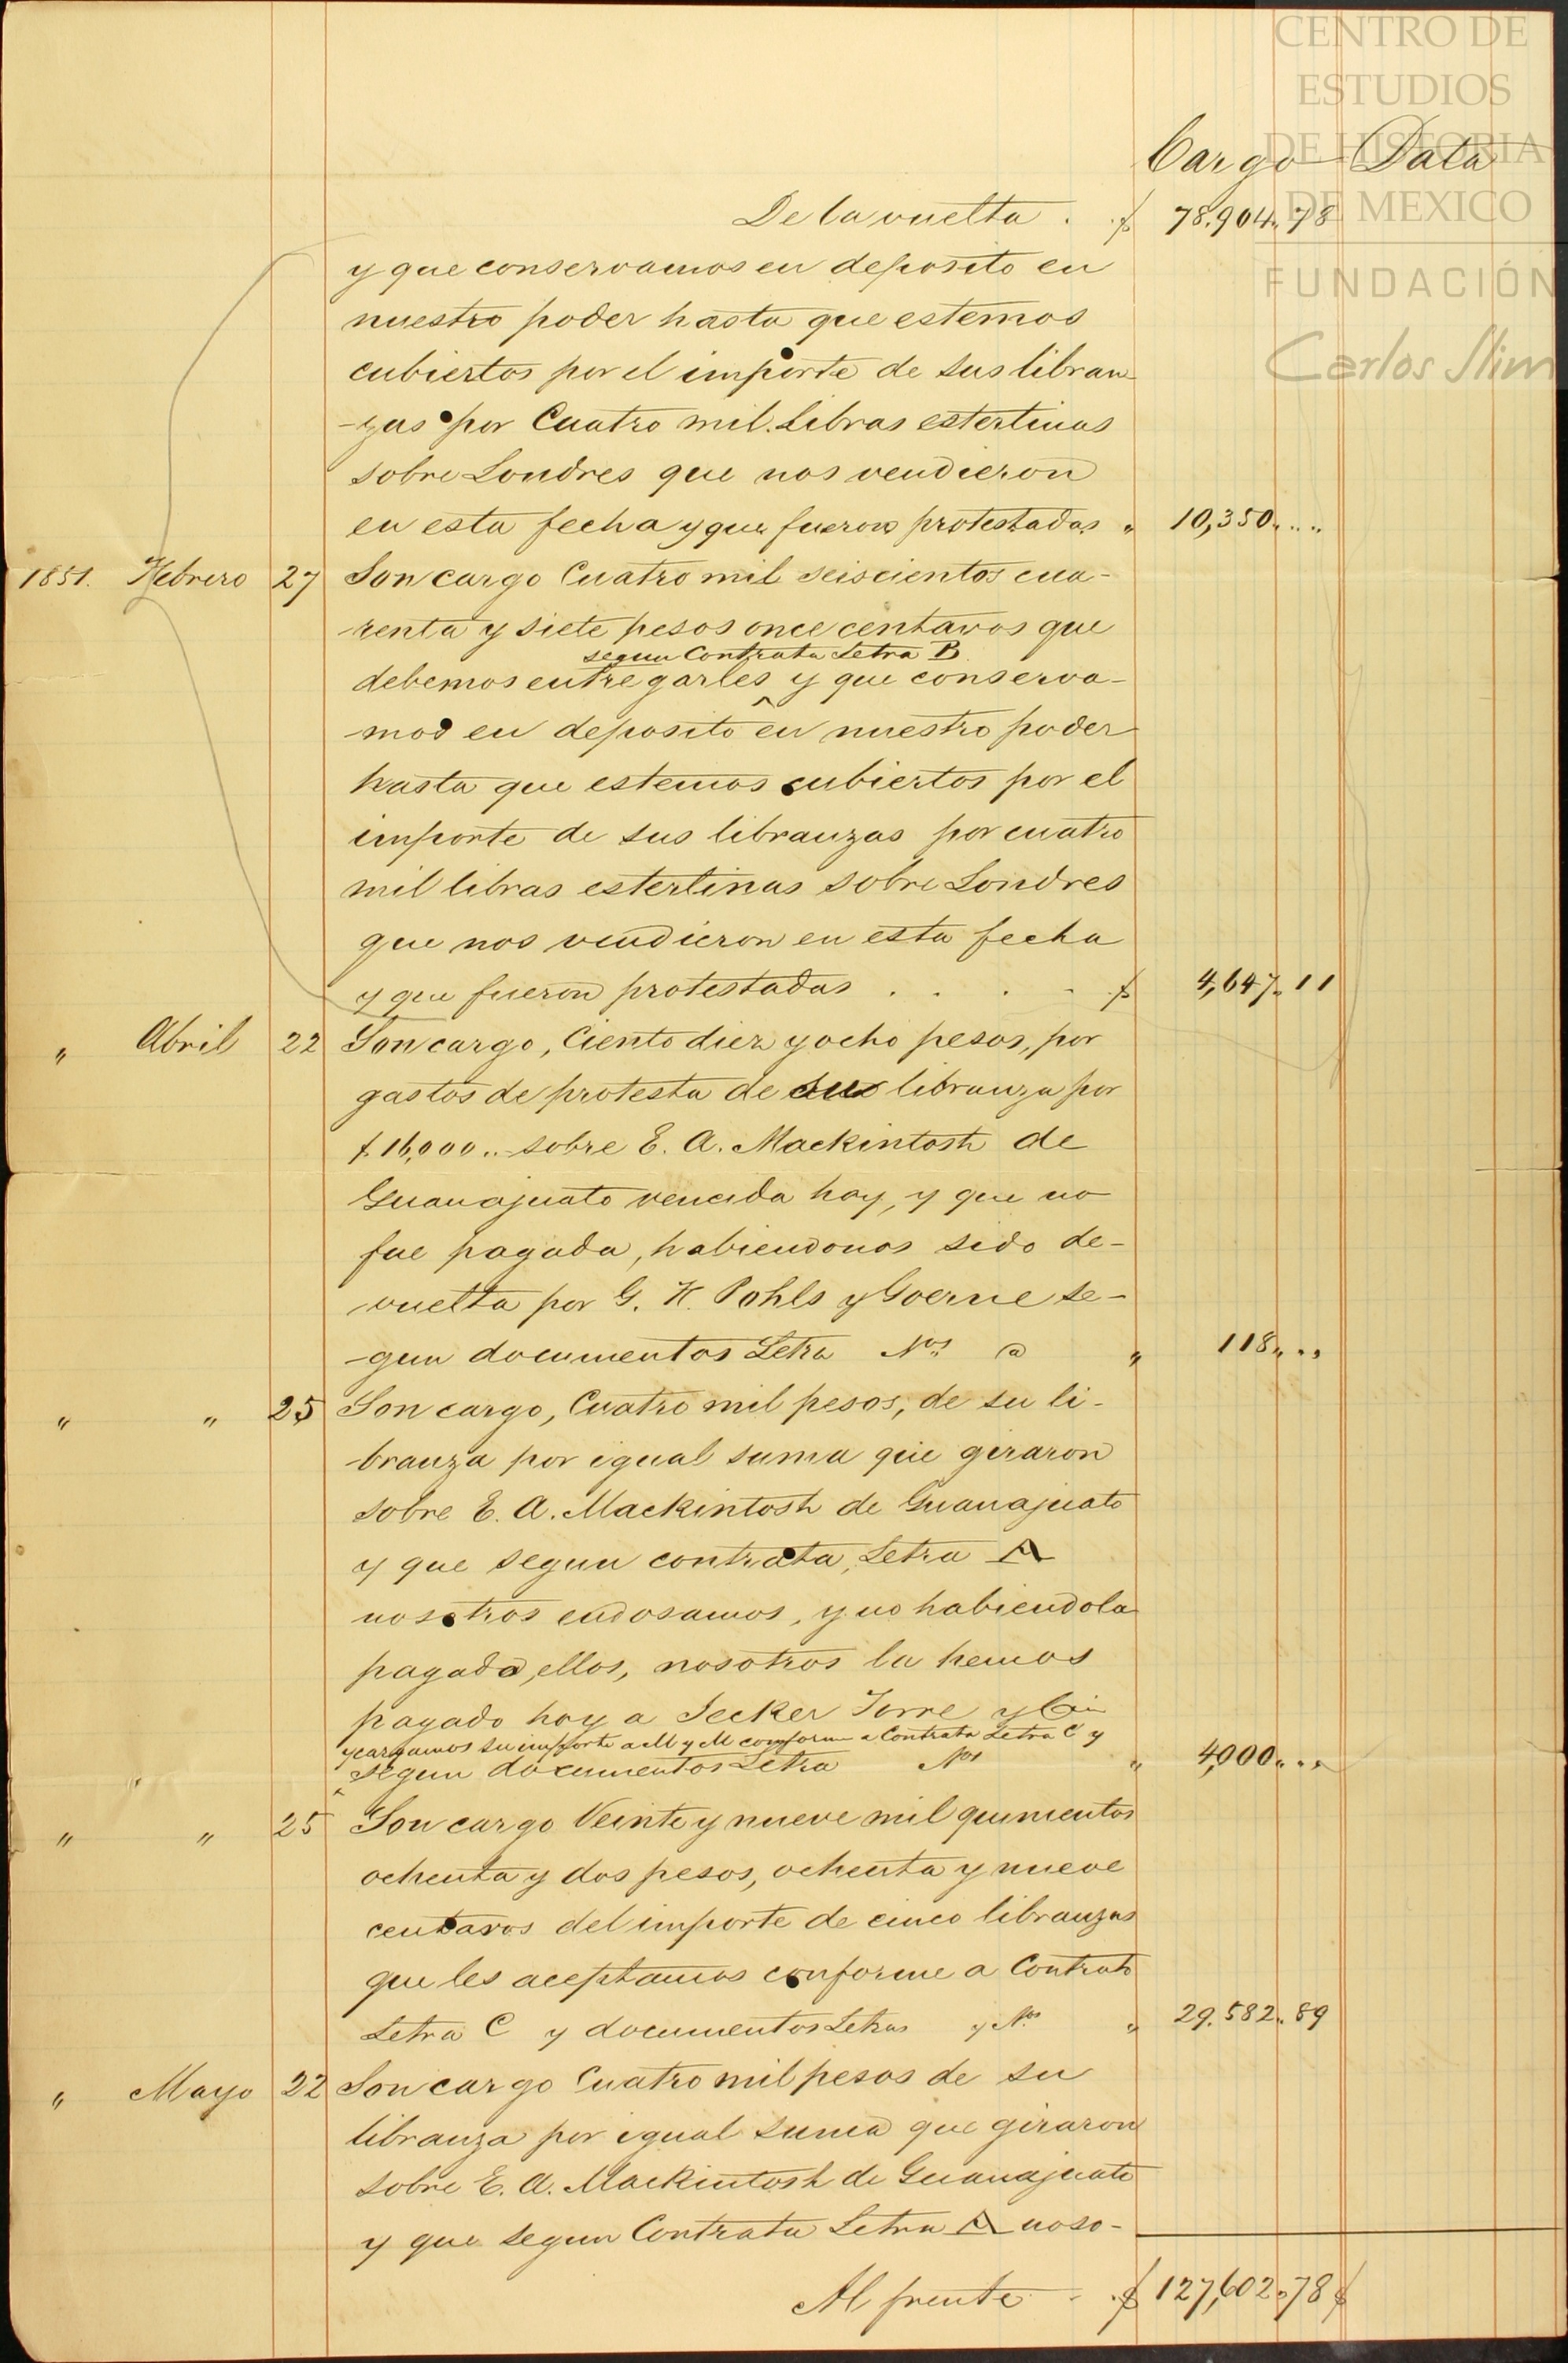 CENTRO DE
ESTUDIOS
DE HISTORIA
DE MEXICO
FUNDACIÓN
Carlos Slim
Cargo Data
De la vuelta . . $ 78.904.. 78
y que conservamos en deposito en
nuestro poder hasta que estemos
cubiertos por el importe de sus libran-
-zas por Cuatro mil Libras esterlinas
sobre Londres que nos vendieron
en esta fecha y que fueron protestadas " 10,350.. ..
1851. Febrero 27 Son cargo Cuatro mil seiscientos cua-
-renta y siete pesos once centavos que
segun Contrata Letra B
debemos entregarles y que conserva-
-mos en deposito en nuestro poder
hasta que estemos cubiertos por el
importe de sus libranzas por cuatro
mil libras esterlinas sobre Londres
que nos vendieron en esta fecha
y que fueron protestadas . . . . $ 4,647.. 11
" Abril 22 Son cargo, Ciento diez y ocho pesos, por
gastos de protesta de su libranza por
$ 16,000.. sobre E. A. Mackintosh de
Guanajuato vencida hoy, y que no
fue pagada, habiendonos sido de-
-vuelta por G. H. Pohls y Goerne se-
-gun documentos Letra Nos a " 118.. ..
" " 25 Son cargo, Cuatro mil pesos, de su li-
-branza por igual suma que giraron
sobre E. A. Mackintosh de Guanajuato
y que segun contrata, Letra A
nosotros endosamos, y no habiendola
pagado, ellos, nosotros la hemos
pagado hoy a Jecker Torre y Cia
y cargamos su importe a M y M conforme a Contrata Letra C y
segun documentos Letra Nos " 4,000.. ..
" " 25 Son cargo Veinte y nueve mil quinientos
ochenta y dos pesos, ochenta y nueve
centavos del importe de cinco libranzas
que les aceptamos conforme a Contrato
Letra C y documentos Letras y Nos " 29.582.. 89
" Mayo 22 Son cargo Cuatro mil pesos de su
libranza por igual suma que giraron
sobre E. A. Mackintosh de Guanajuato
y que segun Contrata Letra A noso-
Al frente . . $ 127,602.. 78 $